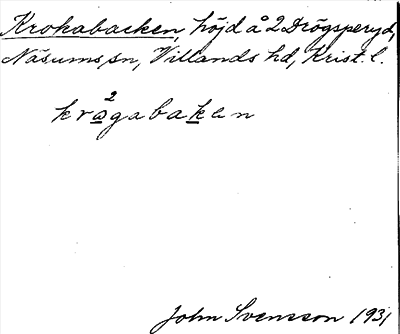 Krokabacken, höjd å 2 Drögsperyd,
Näsums sn, Villands hd, Krist. l.
2
kragabaken
John Svensson 1931